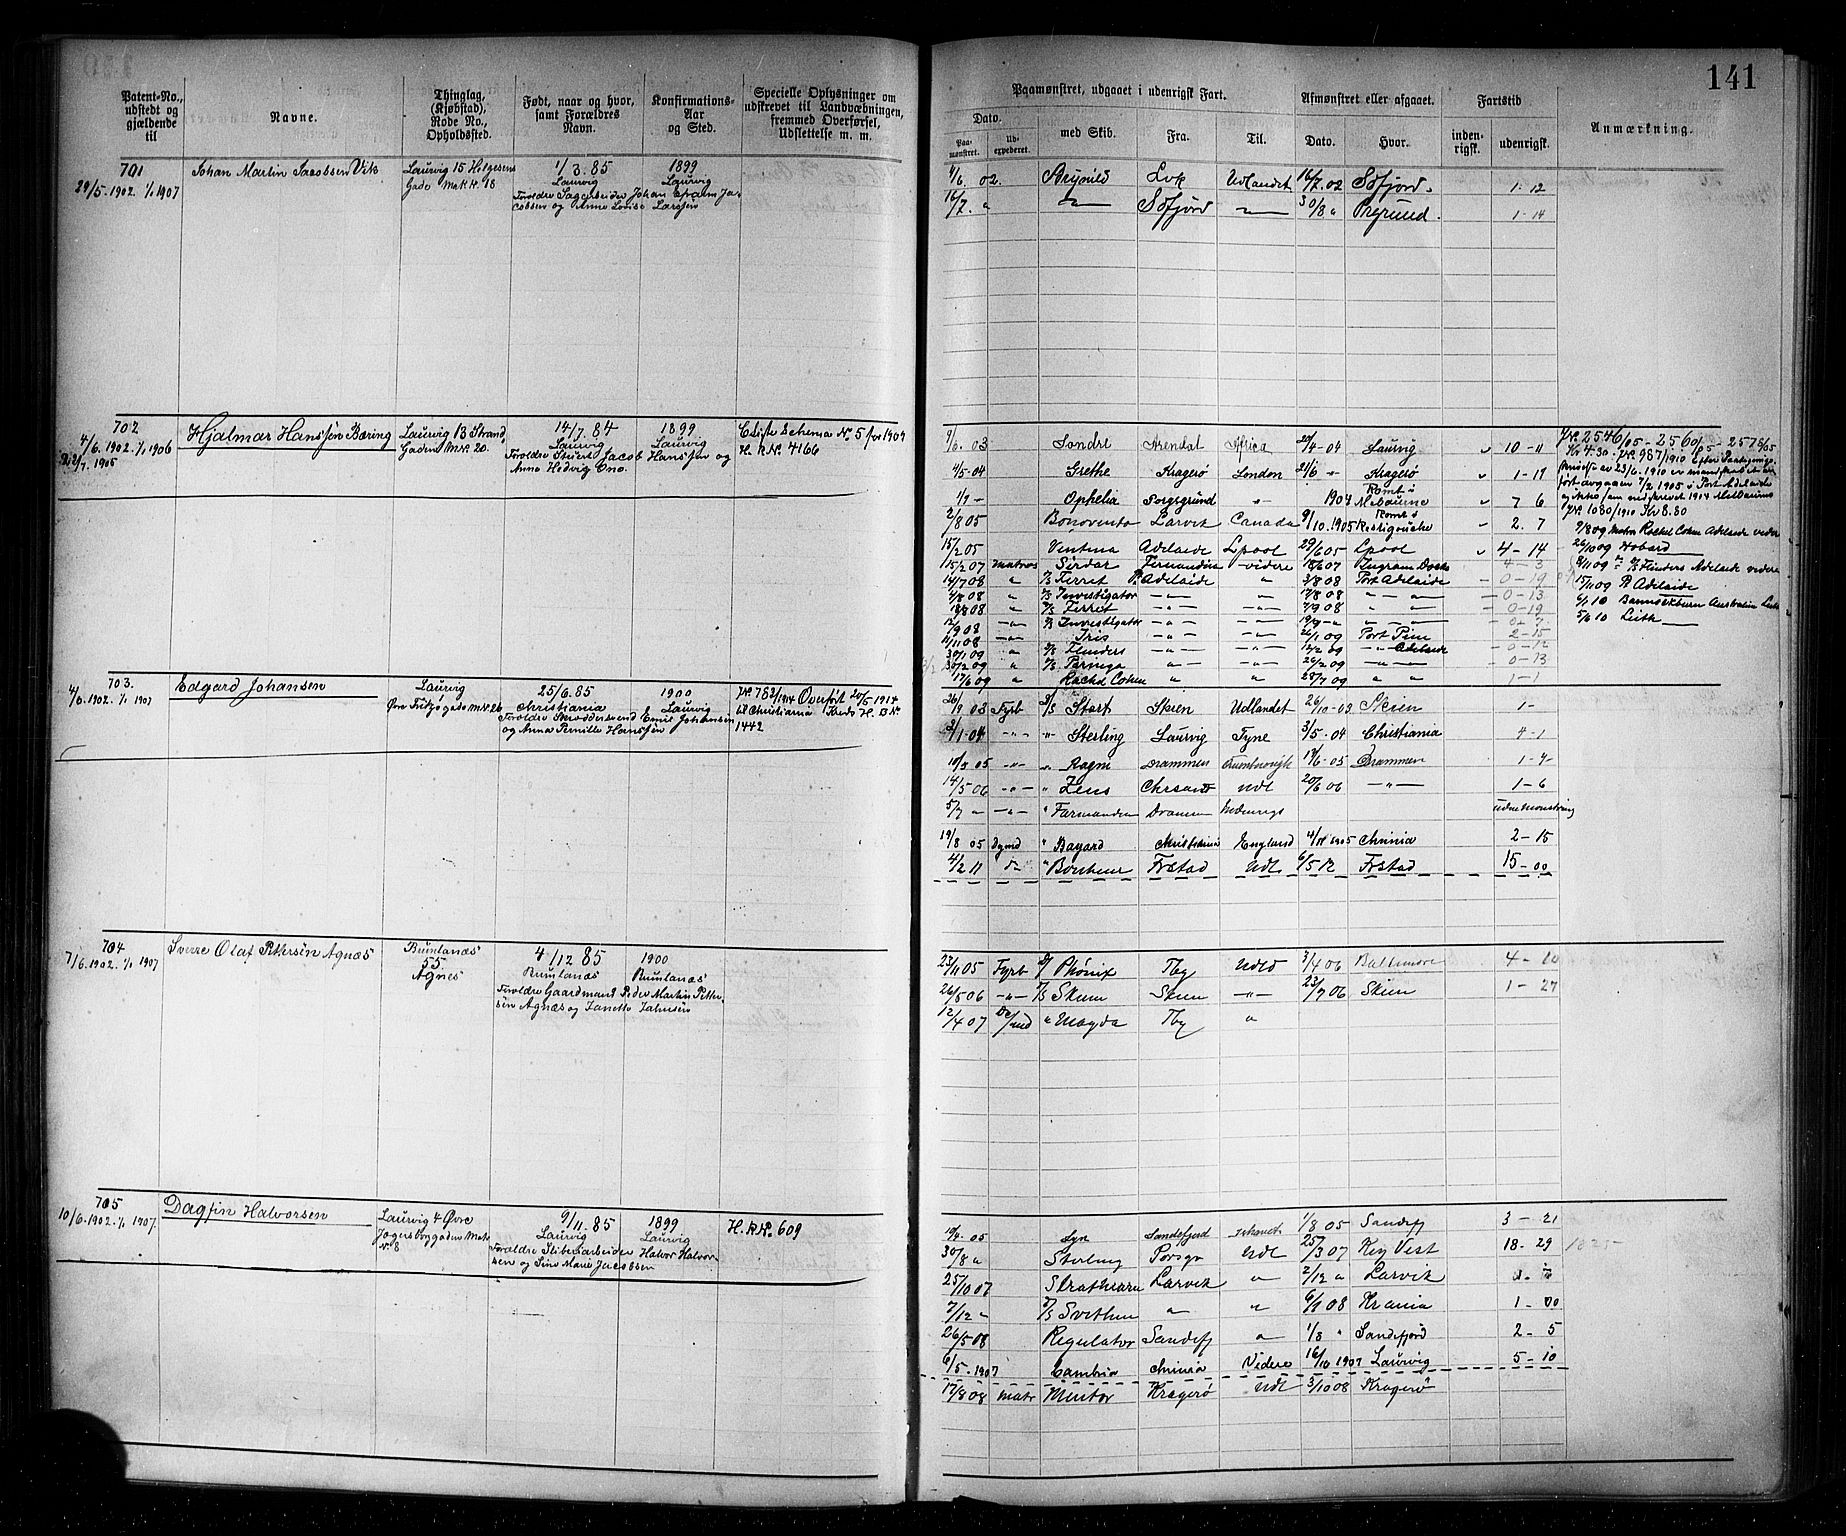 141
Patent-No., udstedt og gjældende til
Navne.
Thinglag, (Kjøbstad), Rode No., Opholdssted.
Født, naar og hvor, samt Forældres Navn.
Konfirmations-Aar og Sted.
Specielle Oplysninger om udskrevet til Landvæbningen, fremmed Overførsel, Udslettelse m. m.
Paamønstret, udgaaet i udenrigsk Fart.
Afmønstret eller afgaaet.
Fartstid
Anmærkning.
Dato.
Paa-mønstret.
Ud-expederet.
med Skib.
Fra:
Til.
Dato.
Hvor.
inden-rigsk.
udenrigsk.
701
29/5.1902. 1/1 1907
Johan Martin Jacobssen Vik
Laurvig 15 Helgesens
Gade Mak N. 18
1/3. 85
Laurvig
1899
Laurvig
Foreldre Sagarbeider Johan Efraim Ja-
cobsen og Anne Lovise Larssen
4/6. 02. Lvk Udlandet 16/7.02 Søfjord. 1-12
16/7. " Søfjord 30/8 " 1-14
702
4/6.1902. 1/1 1906
Hjalmar Hanssen Bæring
Laurvig 13 Strand
Gaden M.N. 20.
14/7. 84
Laurvig
1899
Laurvig
Foreldre Stuert Jacob Hanssen og
Anna Hedvig Ono.
Cfr. Schema No. 5 for 1904
H. R.No. 4166
9/6. 03 Sondre Arendal Africa 20/4-04 Laurvig 10-11
4/5-04 Grethe Kragerø London 21/6 - " Kragerø 1-17
1/9 - Ophelia Porsgrund -"- 1904 Romt i Melbourne 7 6
2/8 05 Bonovento Larvik Canada 9/10.1905 Romt i Restigouche 2. 7
15/2 05 Ventura Adelaide Lpool 29/6 05 Lpool 4-14
15/2 07 Matros Sirdar Fernandina videre 18/6 07 Ingram Docks 4-3
14/7 08 " D/S Ferret P. Adelaide " 3/8 08 Port Adelaide 0-19
4/8 08 " D/S Investigator -"- 17/8 08 -"- 0-13
18/8 08 " D/S Ferret -"- 7/9 08 -"- 0-19
12/9 08 -"- D/S Investigator -"- 19/9 -" -"- 0-7
11/11 08 -"- Iris -"- 26/1 09 Port Pirie 2-15
30/1 09 " D/S Flinders -"- 12/2 09 -"- Adelaide 0-12
D/S Paringa -"- 26/2 09 -"- 0-13
17/6 09 " Rachel Cohen " " 28/7 09 " " 1-1
J.No. 2546/05 - 2560/05 - 2575/05
Kr 4.30 - J.No. 987/1910
J.No. 1080/1910 Kr 8.80
9/8 09 Matr Rachel Cohen Adelaide videre
26/10 09 Hobard
9/11 09 D/S Flinders Adelaide videre
15/11 09 P. Adelaide
6/1 10 Bannockburn Australien Leith
5/6 10 Leith
703.
4/6.1902. 1/1 1907
Edgard Johansen
Laurvig
Øvre Fritzøgade M.N. 26
25/6. 85
Christiania
1900
Laurvig
Foreldre Skræddersvend Emil Johansen
og Anna Pernille Hanssen
J.No. 782/1914 Overført 20/5 1914
til Christiania Kreds H. B No.
1442
26/9 03 Fyrb D/S Start Skien Udlandet 26/10-03 Skien 1-
2/1-04 -"- " Sterling Laurvig Tyne 3/5-04 Christiania 4-1
10/5 05 -"- " Ragni Drammen 17/6-05 Drammen 1-7
14/5 06 -"- " Zeus Chrsand Udl 20/6 06 -"- 1-6
5/7 " -"- " Farmanden Drammen Indenrigs
19/8 05 Dgmd " Bayard Christiania England 4/11 1905 Chrinia 2-15
4/2 11 do " Bonheur Frstad Udl 6/5 12 Frstad 15-00
704
7/6.1902. 1/1 1907
Sverre Olaf Pettersen Agnæs
Brunlanæs
55
Agnes
4/12 85
Brunlanæs
1900
Brunlanæs
Foreldre Gaardmand Peder Martin Petter-
sen Agnæs og Janette Johnsen
23/11 05 Fyrb D/S Phønix Tbg Udld 3/4 06 Baltimore 4-10
26/5 06 -"- D/S Skien Skien -"- 23/7 06 Skien 1-27
12/4 07 " Magda Tbg "
705
10/6.1902. 1/1 1907.
Dagfin Halvorsen
Laurvig 4 Øvre
Jegersborggaden Mak
N. 8
9/11. 85
Laurvig
1899
Laurvig
Foreldre Sliberiarbeider Halvor Halvor-
sen og Sine Marie Jacobsen
H. R.No. 609
Lyn Sandefjord 1/8 05 Sandefj 3-21
30/8 " Sterling Porsgr Udl 25/3 07 Key Vest 18-29
25/10 07 Strathearn Larvik " 2/12 " Larvik
7/12 " D/S Svithun " " 6/1 08 Krania 1-00
26/5 08 Regulator Sandefj " 1/8 " Sandefjord 2-5
6/5.1907 Cambria Chrinia Videre 16/10 1907 Laurvig 5-10
17/8 08 Matr Mentor Kragerø Udl 3/10 08 Kragerø